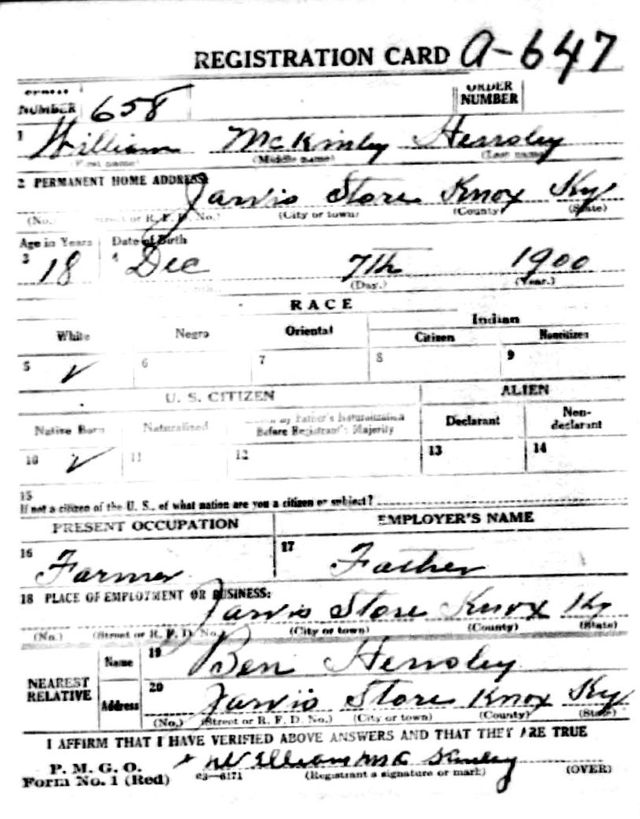 REGISTRATION CARD A-647
NUMBER 658 ORDER NUMBER
1 William McKinley Hensley
(First name) (Middle name) (Last name)
2 PERMANENT HOME ADDRESS: Jarvis Store Knox Ky
(No.) (Street or R. F. D. No.) (City or town) (County) (State)
Age in Years Date of Birth
3 18 4 Dec 7th 1900
(Day.) (Year.)
RACE
White Negro Oriental Indian
Citizen Noncitizen
5 ✓ 6 7 8 9
U. S. CITIZEN ALIEN
Native Born Naturalized Father's Naturalization Before Registrant's Majority Declarant Non-declarant
10 ✓ 11 12 13 14
15
If not a citizen of the U. S., of what nation are you a citizen or subject?
PRESENT OCCUPATION EMPLOYER'S NAME
16 Farmer 17 Father
18 PLACE OF EMPLOYMENT OR BUSINESS: Jarvis Store Knox Ky
(No.) (Street or R. F. D. No.) (City or town) (County) (State)
NEAREST RELATIVE Name 19 Ben Hensley
Address 20 Jarvis Store Knox Ky
(No.) (Street or R. F. D. No.) (City or town) (County) (State)
I AFFIRM THAT I HAVE VERIFIED ABOVE ANSWERS AND THAT THEY ARE TRUE
P. M. G. O.
Form No. 1 (Red) 03—6171 (Registrant's signature or mark) (OVER)